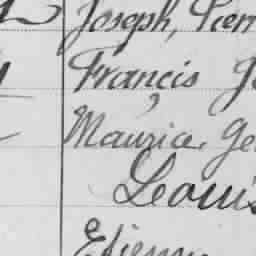 Joseph, Pierr
Francis Jo
Maurice, Ge
Louis
Etienn